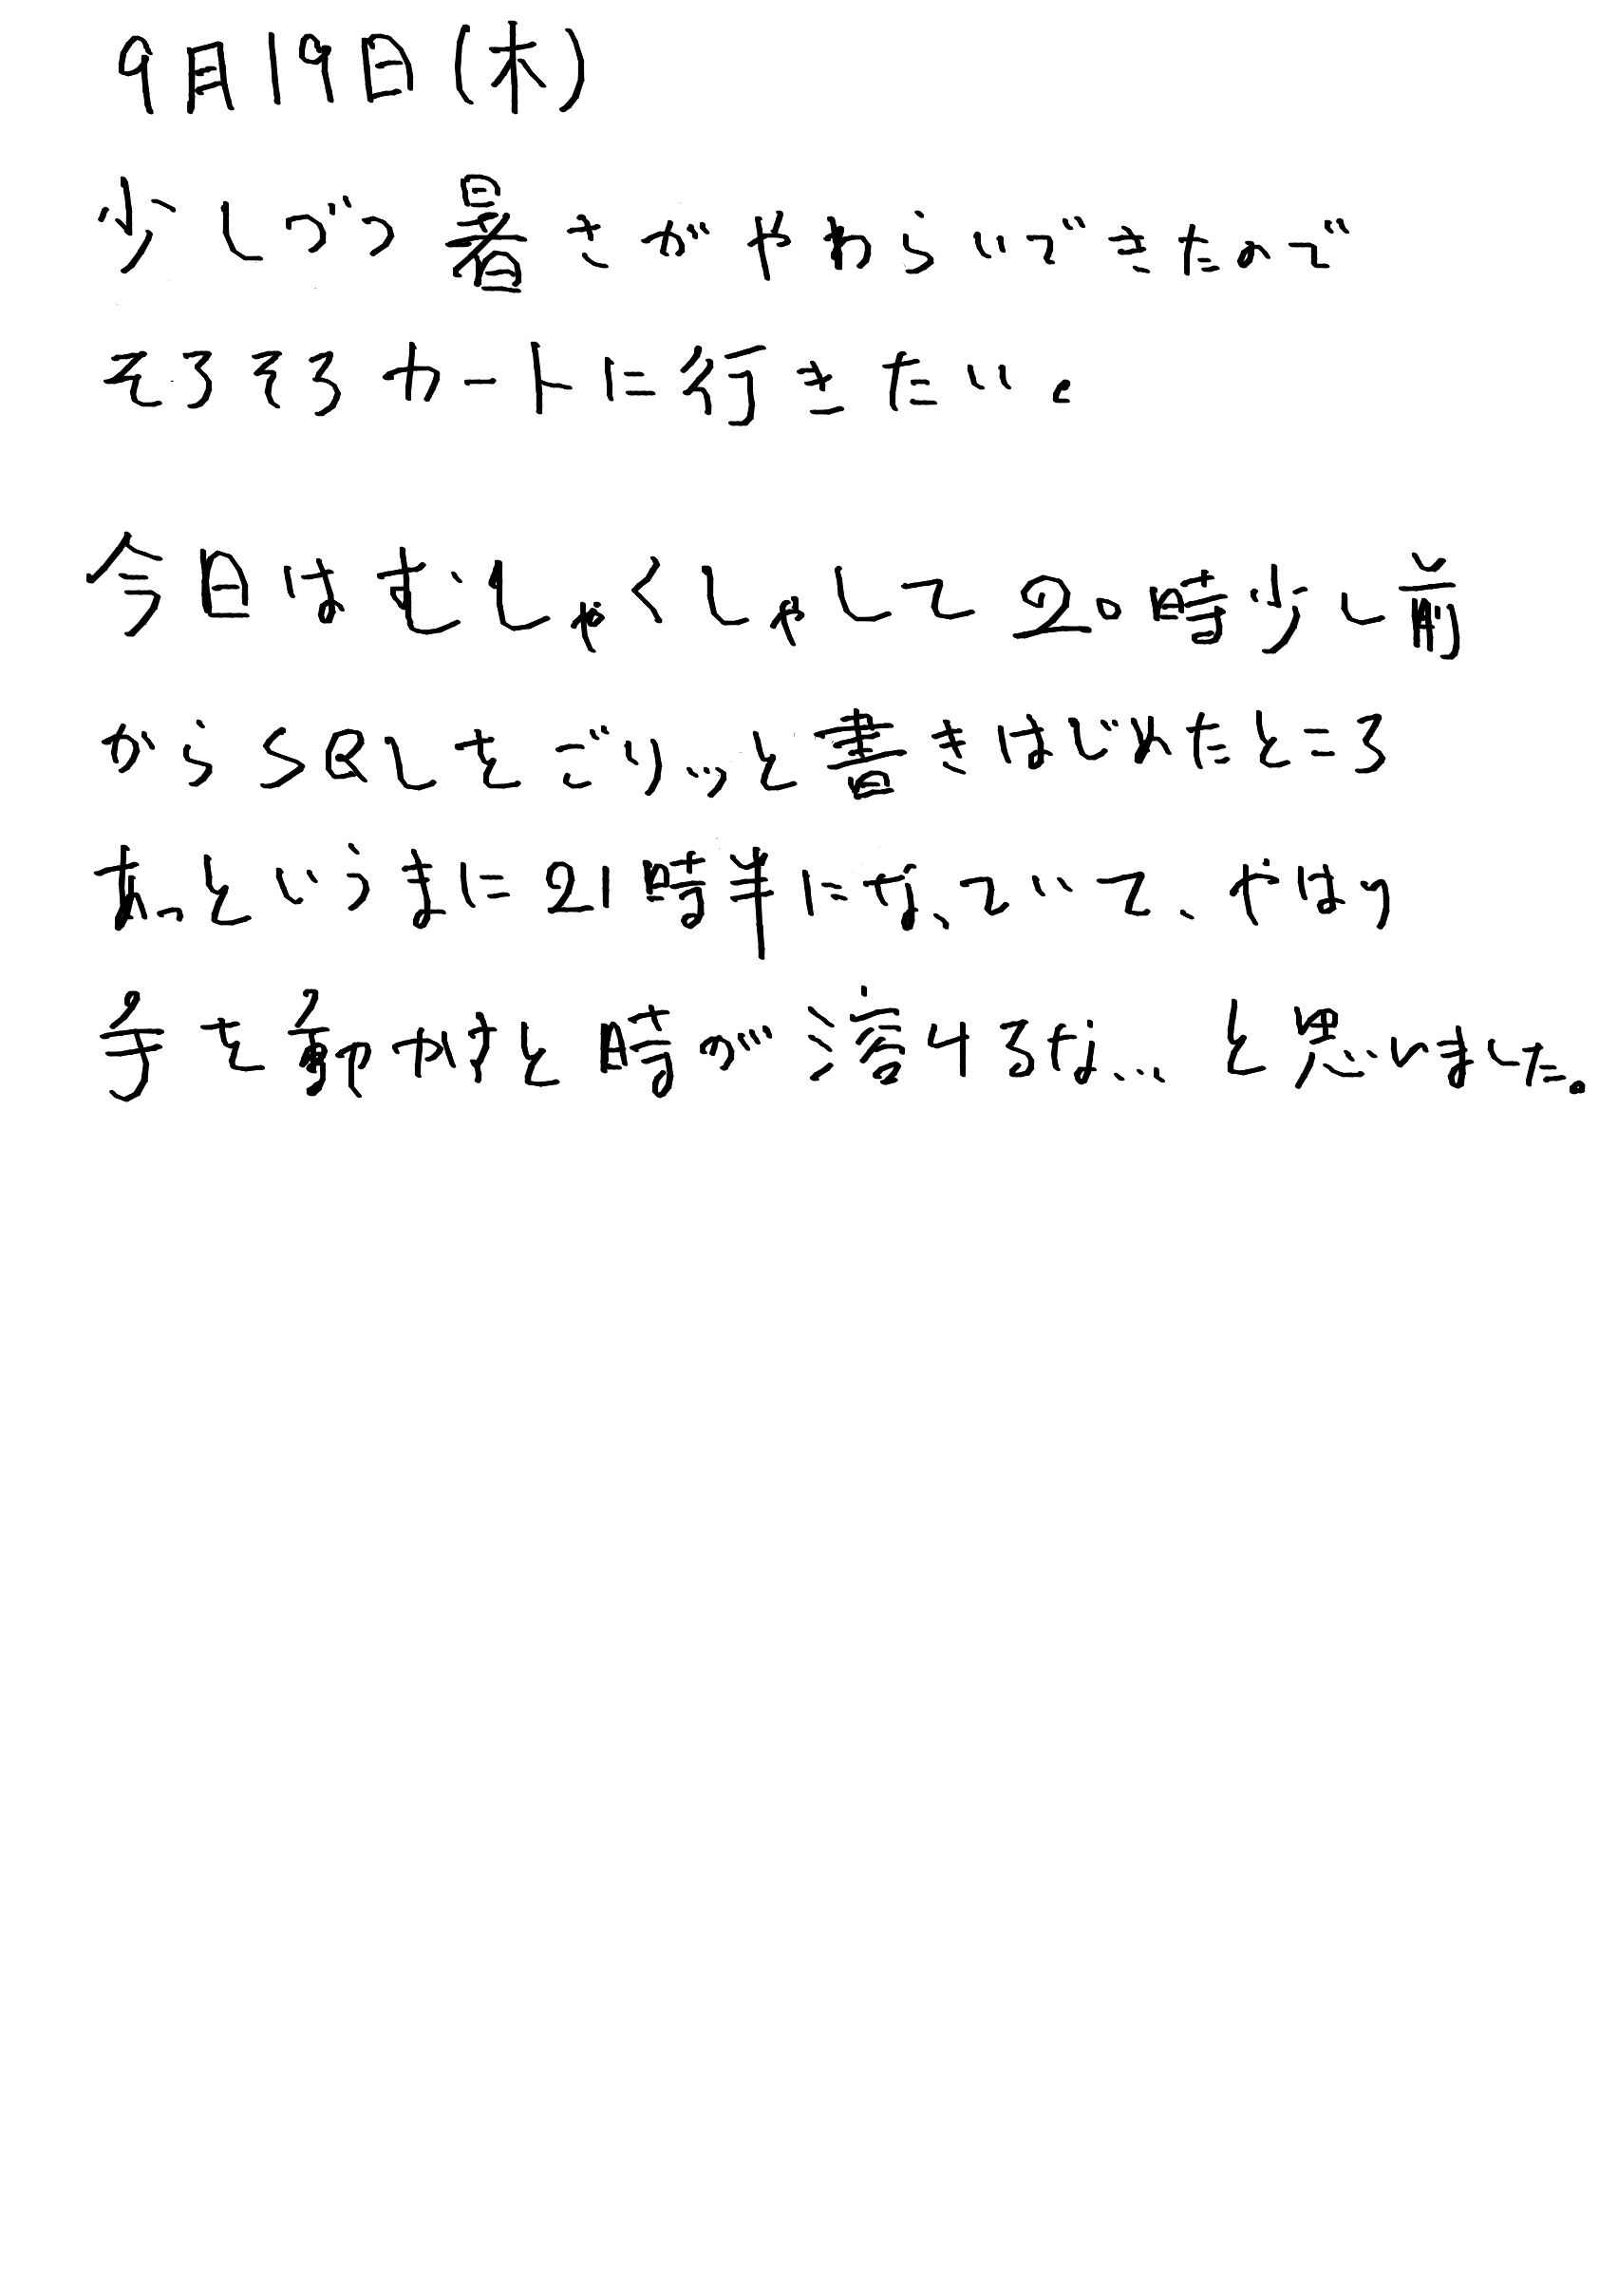 9月19日(木)
少しづつ暑さがやわらいできたので
そろそろカートに行きたい。
今日はむしゃくしゃして20時少し前
からSQLをごりッと書きはじめたところ
あっというまに21時半になっていて、やはり
手を動かすと時が溶けるな…と思いました。